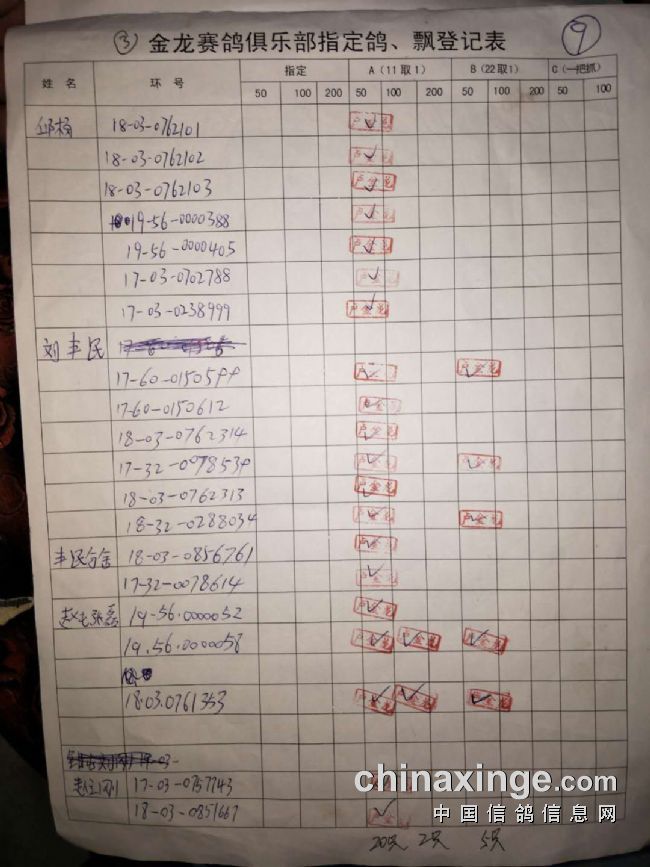 ③ 金龙赛鸽俱乐部指定鸽、飘登记表 ⑨
姓 名 环 号 指定 A（11取1） B（22取1） C（一把抓）
50 100 200 50 100 200 50 100 200 50 100
18-03-0762101
18-03-0762102
18-03-0762103
19-56-0000388
19-56-0000405
17-03-0702788
17-03-0238999
刘丰民
17-60-0150599
17-60-0150612
18-03-0762314
17-32-0078539
18-03-0762313
18-32-0288034
丰民合金 18-03-0856761
17-32-0078614
19-56.0000052
19.56.0000058
18.03.0761353
17-03-0757743
18-03-0851667
20只 2只 5只
chinaxinge.com
中国信鸽信息网